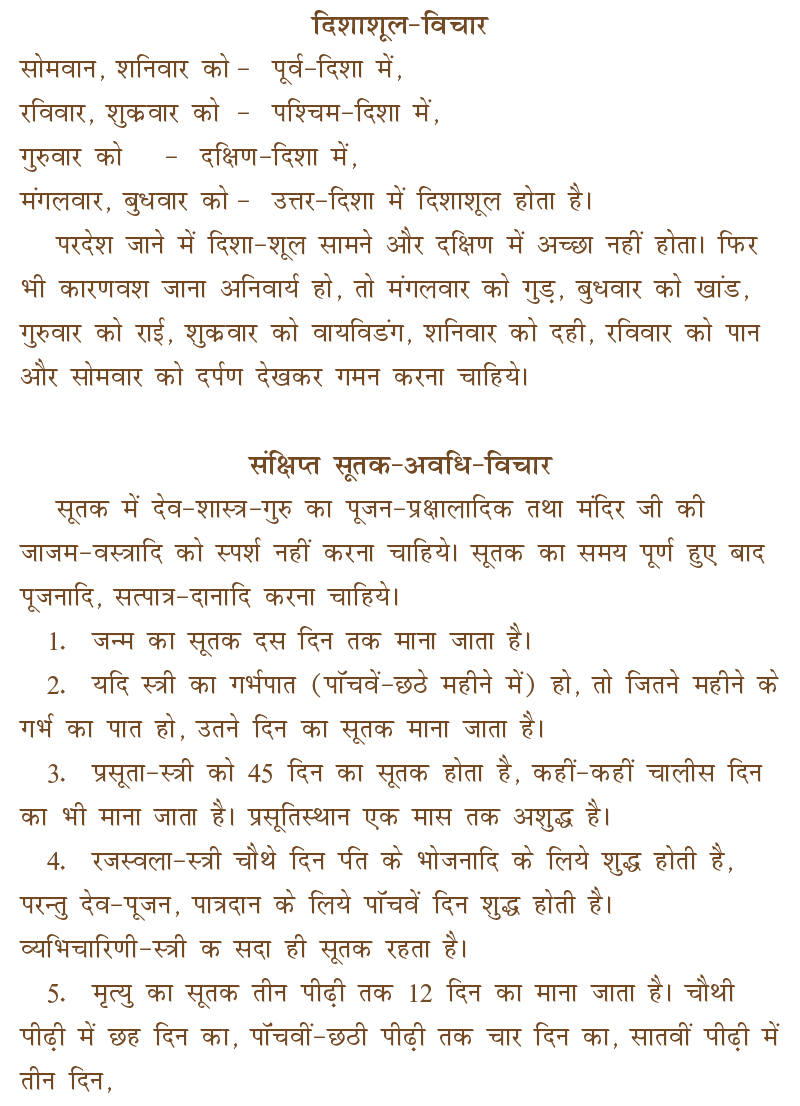 दिशाशूल-विचार
सोमवान, शनिवार को - पूर्व-दिशा में,
रविवार, शुक्रवार को - पश्चिम-दिशा में,
गुरुवार को - दक्षिण-दिशा में,
मंगलवार, बुधवार को - उत्तर-दिशा में दिशाशूल होता है।
परदेश जाने में दिशा-शूल सामने और दक्षिण में अच्छा नहीं होता। फिर
भी कारणवश जाना अनिवार्य हो, तो मंगलवार को गुड़, बुधवार को खांड,
गुरुवार को राई, शुक्रवार को वायविडंग, शनिवार को दही, रविवार को पान
और सोमवार को दर्पण देखकर गमन करना चाहिये।
संक्षिप्त सूतक-अवधि-विचार
सूतक में देव-शास्त्र-गुरु का पूजन-प्रक्षालादिक तथा मंदिर जी की
जाजम-वस्त्रादि को स्पर्श नहीं करना चाहिये। सूतक का समय पूर्ण हुए बाद
पूजनादि, सत्पात्र-दानादि करना चाहिये।
1. जन्म का सूतक दस दिन तक माना जाता है।
2. यदि स्त्री का गर्भपात (पाॅचवें-छठे महीने में) हो, तो जितने महीने के
गर्भ का पात हो, उतने दिन का सूतक माना जाता है।
3. प्रसूता-स्त्री को 45 दिन का सूतक होता है, कहीं-कहीं चालीस दिन
का भी माना जाता है। प्रसूतिस्थान एक मास तक अशुद्ध है।
4. रजस्वला-स्त्री चौथे दिन पति के भोजनादि के लिये शुद्ध होती है,
परन्तु देव-पूजन, पात्रदान के लिये पाॅचवें दिन शुद्ध होती है।
व्यभिचारिणी-स्त्री क सदा ही सूतक रहता है।
5. मृत्यु का सूतक तीन पीढ़ी तक 12 दिन का माना जाता है। चौथी
पीढ़ी में छह दिन का, पाॅचवीं-छठी पीढ़ी तक चार दिन का, सातवीं पीढ़ी में
तीन दिन,